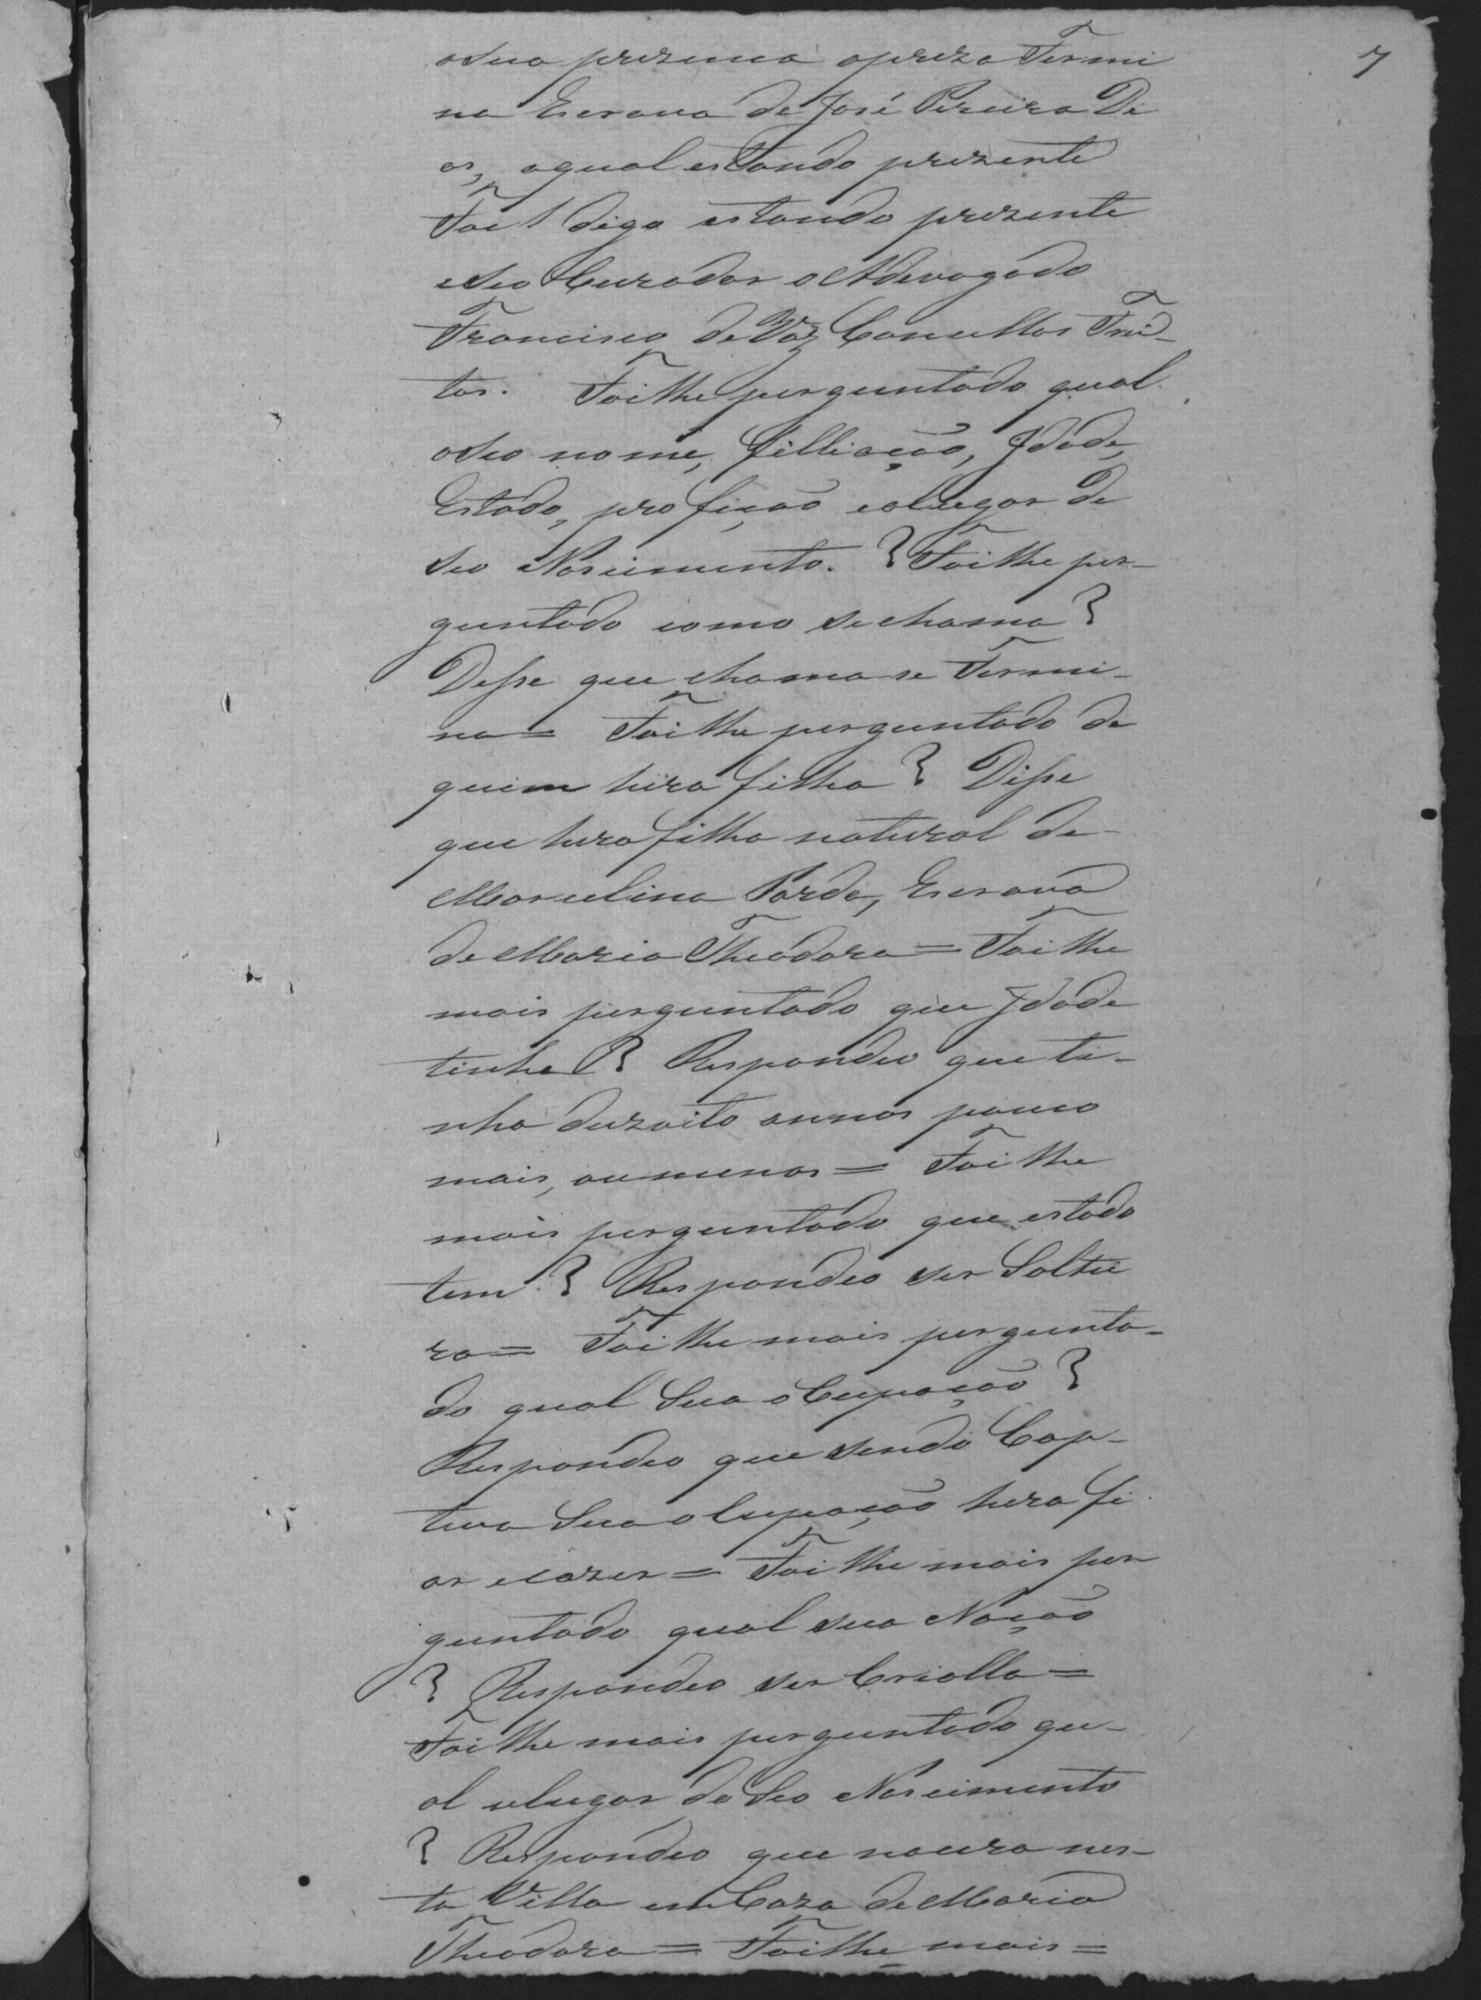 7
a sua prezença a preza Firmi
na Escrava de José Pereira Di
as, a qual estando prezente
Foi digo estando prezente
e seo Curador o Adevogado
Francisco de Vas Concellos Frei
tas. Foi lhe perguntado qual
o seo nome, filliação, Idade,
Estado, profição e o lugar de
seo Nascimento. ? Foi lhe per-
guntado como se chama ?
Desse que chama se Firmi-
na = Foi lhe perguntado de
quem hera filha ? Disse
que hera filha natural de
Marcelina Parda, Escrava
de Maria Theodora = Foi lhe
mais perguntado que Idade
tinha ? Respondeo que ti-
nha dezoito annos pouco
mais, ou menos = Foi lhe
mais perguntado que estado
tem ? Respondeo ser Soltei
ra = Foi lhe mais pergunta-
do qual Sua oCupação ?
Respondeo que sendo Cap-
tiva Sua oCupação hera fi
ar e cozer = Foi lhe mais per
guntado qual sua Nação
? Respondeo ser Criolla =
Foi lhe mais perguntado qu-
al o lugar do Seo Nascimento
? Respondeo que nacera nes-
ta Villa em Caza de Maria
Theodora = Foi lhe mais =